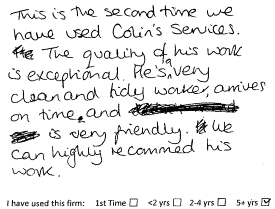 This is the second time we
have used Colin's services.
The quality of his work
is exceptional. He's a very
clean and tidy worker, arrives
on time, and
is very friendly. We
can highly recommed his
work.
I have used this firm: 1st Time ☐ <2 yrs ☐ 2-4 yrs ☐ 5+ yrs ☑